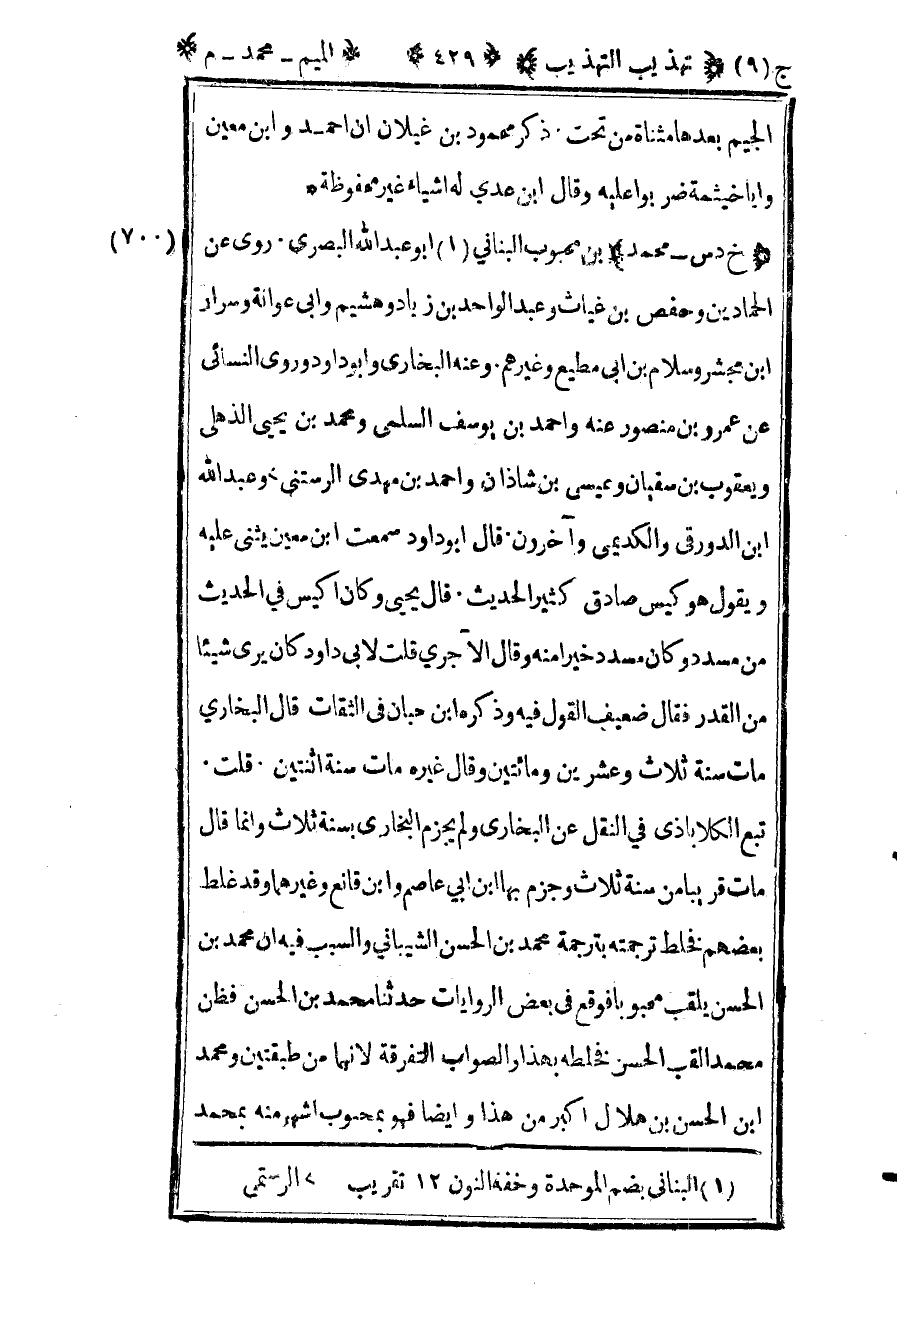 ج (٩) ﴿ تهذيب التهذيب ﴾ ﴿ ٤٢٩ ﴾ ﴿ الميم - محمد - م ﴾
الجيم بعدها مثناة من تحت . ذكر محمود بن غيلان ان احمد و ابن معين
و ابا خيثمة ضربوا عليه وقال ابن عدي له اشياء غير محفوظة *
﴿ خ د س - محمد ﴾ بن محبوب البناني (١) ابو عبدالله البصري . روى عن (٧٠٠)
الحمادين و حفص بن غياث و عبد الواحد بن زياد و هشيم و ابى عوانة و سرار
ابن مجشر و سلام بن ابى مطيع و غيرهم . و عنه البخارى و ابو داود و روى النسائى
عن عمرو بن منصور عنه و احمد بن يوسف السلمى و محمد بن يحيى الذهلى
و يعقوب بن سفيان و عيسى بن شاذان و احمد بن مهدى الرستنى > و عبد الله
ابن الدورقى والكديمى و آخرون . قال ابو داود سمعت ابن معين يثنى عليه
و يقول هو كيس صادق كثير الحديث . قال يحيى و كان اكيس في الحديث
من مسدد و كان مسدد خيرا منه و قال الآجري قلت لابى داود كان يرى شيئا
من القدر فقال ضعيف القول فيه و ذكره ابن حبان فى الثقات قال البخاري
مات سنة ثلاث و عشرين و مائتين و قال غيره مات سنة اثنتين . قلت .
تبع الكلاباذى في النقل عن البخارى و لم يجزم البخارى بسنة ثلاث و انما قال
مات قريبا من سنة ثلاث و جزم بها ابن ابي عاصم و ابن قانع و غيرهما و قد غلط
بعضهم فخلط ترجمته بترجمة محمد بن الحسن الشيباني و السبب فيه ان محمد بن
الحسن يلقب محبوبا فوقع فى بعض الروايات حدثنا محمد بن الحسن فظن
محمدا لقب الحسن فخلطه بهذا و الصواب التفرقة لانهما من طبقتين و محمد
ابن الحسن بن هلال اكبر من هذا و ايضا فهو بمحبوب اشهر منه بمحمد
(١) البنانى بضم الموحدة و خفة النون ١٢ تقريب > الرستمى